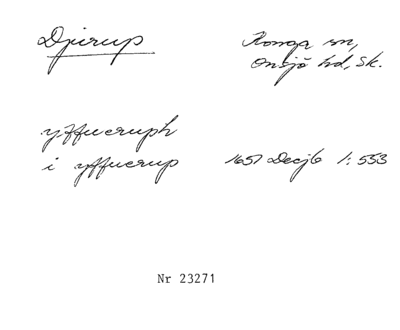 Djurup
Konga sn,
Onsjö hd, Sk.
yffueruph
i yffuerup
1651 Decjb 1:553
Nr 23271